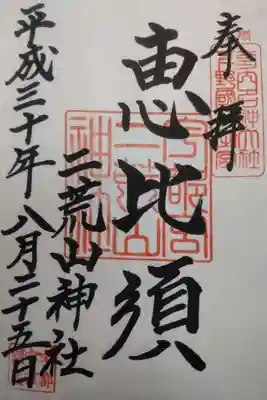 奉拝
恵比須
二荒山神社
平成三十年八月二十五日